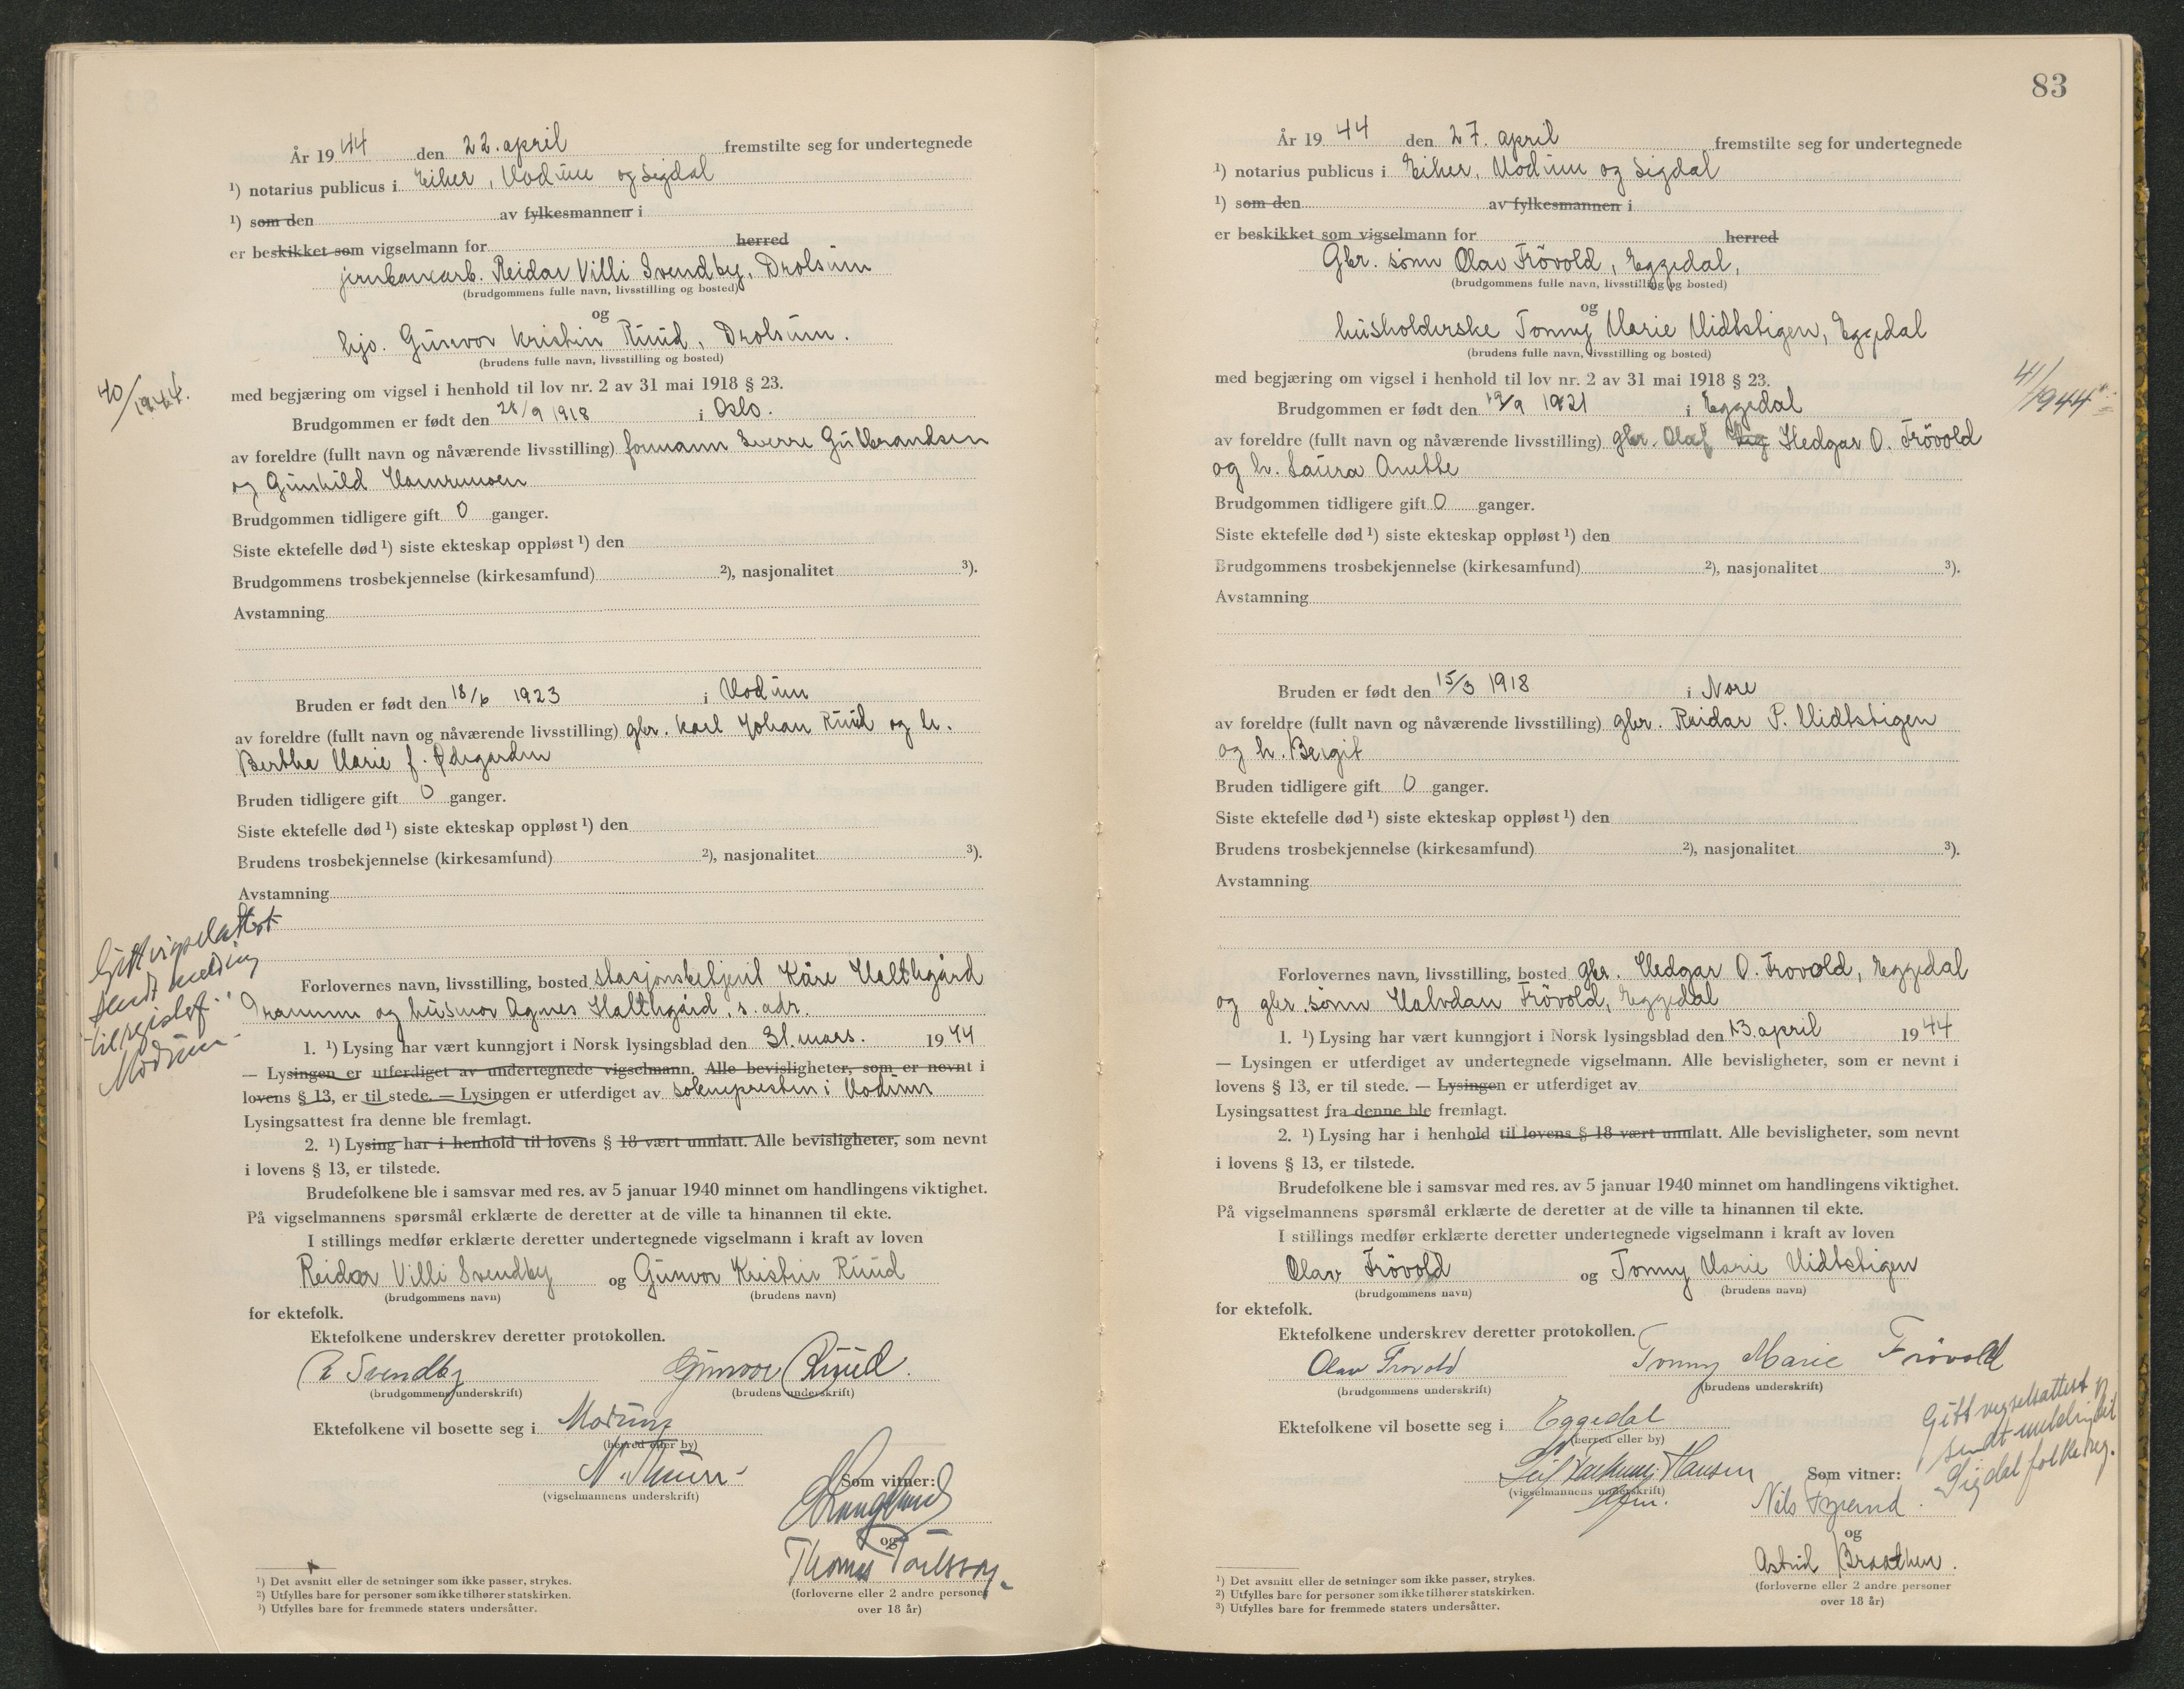 År 1944 den 22. april fremstilte seg for undertegnede
¹) notarius publicus i Eiker, Modum og Sigdal
¹) som den av fylkesmannen i
er beskikket som vigselmann for herred
jernbanearb. Reidar Villi Svendby, Drolsum
(brudgommens fulle navn, livsstilling og bosted)
og
hjv. Gunvor Kristin Ruud, Drolsum.
(brudens fulle navn, livsstilling og bosted)
40/1944.
med begjæring om vigsel i henhold til lov nr. 2 av 31 mai 1918 § 23.
Brudgommen er født den 28/9 1918 i Oslo.
av foreldre (fullt navn og nåværende livsstilling) formann Sverre Gulbrandsen
og Gunhild
Brudgommen tidligere gift 0 ganger.
Siste ektefelle død ¹) siste ekteskap oppløst ¹) den
Brudgommens trosbekjennelse (kirkesamfund) ²), nasjonalitet ³).
Avstamning
Bruden er født den 18/6 1923 i Modum
av foreldre (fullt navn og nåværende livsstilling) gbr. Karl Johan Ruud og h.
Berthe Marie f. Ødegarden
Bruden tidligere gift 0 ganger.
Siste ektefelle død ¹) siste ekteskap oppløst ¹) den
Brudens trosbekjennelse (kirkesamfund) ²), nasjonalitet ³).
Avstamning
Gitt vigselattest
sendt melding
til
Modum
Forlovernes navn, livsstilling, bosted stasjonsbetjent Kåre
og husmor Agnes s. adr.
1. ¹) Lysing har vært kunngjort i Norsk lysingsblad den 31. mars. 1944
— Lysingen er utferdiget av undertegnede vigselmann. Alle bevisligheter, som er nevnt i
lovens § 13, er til stede. — Lysingen er utferdiget av sokneprestin i Modum
Lysingsattest fra denne ble fremlagt.
2. ¹) Lysing har i henhold til lovens § 18 vært unnlatt. Alle bevisligheter, som nevnt
i lovens § 13, er tilstede.
Brudefolkene ble i samsvar med res. av 5 januar 1940 minnet om handlingens viktighet.
På vigselmannens spørsmål erklærte de deretter at de ville ta hinannen til ekte.
I stillings medfør erklærte deretter undertegnede vigselmann i kraft av loven
Reidar Villi Svendby og Gunvor Kristin Ruud
(brudgommens navn) (brudens navn)
for ektefolk.
Ektefolkene underskrev deretter protokollen.
R Svendby Gunvor Ruud.
(brudgommens underskrift) (brudens underskrift)
Ektefolkene vil bosette seg i Modum
(herred eller by)
(vigselmannens underskrift)
Som vitner:
og
Thomas
(forloverne eller 2 andre personer
over 18 år)
¹) Det avsnitt eller de setninger som ikke passer, strykes.
²) Utfylles bare for personer som ikke tilhører statskirken.
³) Utfylles bare for fremmede staters undersåtter.
83
År 1944 den 27. april fremstilte seg for undertegnede
¹) notarius publicus i Eiker, Modum og Sigdal
¹) som den av fylkesmannen i
er beskikket som vigselmann for herred
Gbr. sønn Olav Frövold, Eggedal,
(brudgommens fulle navn, livsstilling og bosted)
og
husholderske Tonny Marie Midtstigen, Eggedal
(brudens fulle navn, livsstilling og bosted)
41/1944
med begjæring om vigsel i henhold til lov nr. 2 av 31 mai 1918 § 23.
Brudgommen er født den 19/9 1921 i Eggedal
av foreldre (fullt navn og nåværende livsstilling) gbr. Olaf Hedgar O. Frövold
og h. Laura Anette
Brudgommen tidligere gift 0 ganger.
Siste ektefelle død ¹) siste ekteskap oppløst ¹) den
Brudgommens trosbekjennelse (kirkesamfund) ²), nasjonalitet ³).
Avstamning
Bruden er født den 15/3 1918 i Nore
av foreldre (fullt navn og nåværende livsstilling) gbr. Reidar P. Midtstigen
og h. Bergit
Bruden tidligere gift 0 ganger.
Siste ektefelle død ¹) siste ekteskap oppløst ¹) den
Brudens trosbekjennelse (kirkesamfund) ²), nasjonalitet ³).
Avstamning
Forlovernes navn, livsstilling, bosted gbr. Hedgar O. Frovold, Eggedal
og gbr. sønn Halvdan Frövold, Eggedal
1. ¹) Lysing har vært kunngjort i Norsk lysingsblad den 13. april 1944
— Lysingen er utferdiget av undertegnede vigselmann. Alle bevisligheter, som er nevnt i
lovens § 13, er til stede. — Lysingen er utferdiget av
Lysingsattest fra denne ble fremlagt.
2. ¹) Lysing har i henhold til lovens § 18 vært unnlatt. Alle bevisligheter, som nevnt
i lovens § 13, er tilstede.
Brudefolkene ble i samsvar med res. av 5 januar 1940 minnet om handlingens viktighet.
På vigselmannens spørsmål erklærte de deretter at de ville ta hinannen til ekte.
I stillings medfør erklærte deretter undertegnede vigselmann i kraft av loven
Olav Frövold og Tonny Marie Midtstigen
(brudgommens navn) (brudens navn)
for ektefolk.
Ektefolkene underskrev deretter protokollen.
Olav Frovold Tonny Marie Frövold
(brudgommens underskrift) (brudens underskrift)
Ektefolkene vil bosette seg i Eggedal
(herred eller by)
Gitt vigselsattest og
sendt melding til
Sigdal folkereg.
Hansen
(vigselmannens underskrift)
Som vitner:
Nils
og
Astrid Braathen.
(forloverne eller 2 andre personer
over 18 år)
¹) Det avsnitt eller de setninger som ikke passer, strykes.
²) Utfylles bare for personer som ikke tilhører statskirken.
³) Utfylles bare for fremmede staters undersåtter.